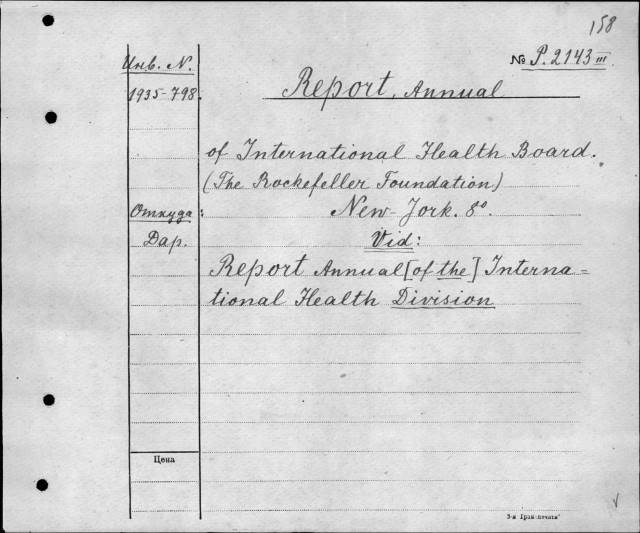 158
Инв. N.
№ P. 2143 III
1935-798.
Report, Annual
of International Health Board.
(The Rockefeller Foundation)
Откуда:
New-Jork. 8°.
Дар.
Vid:
Report Annual [of the] Interna=
tional Health Division
Цена
3-я Гран печать"
v